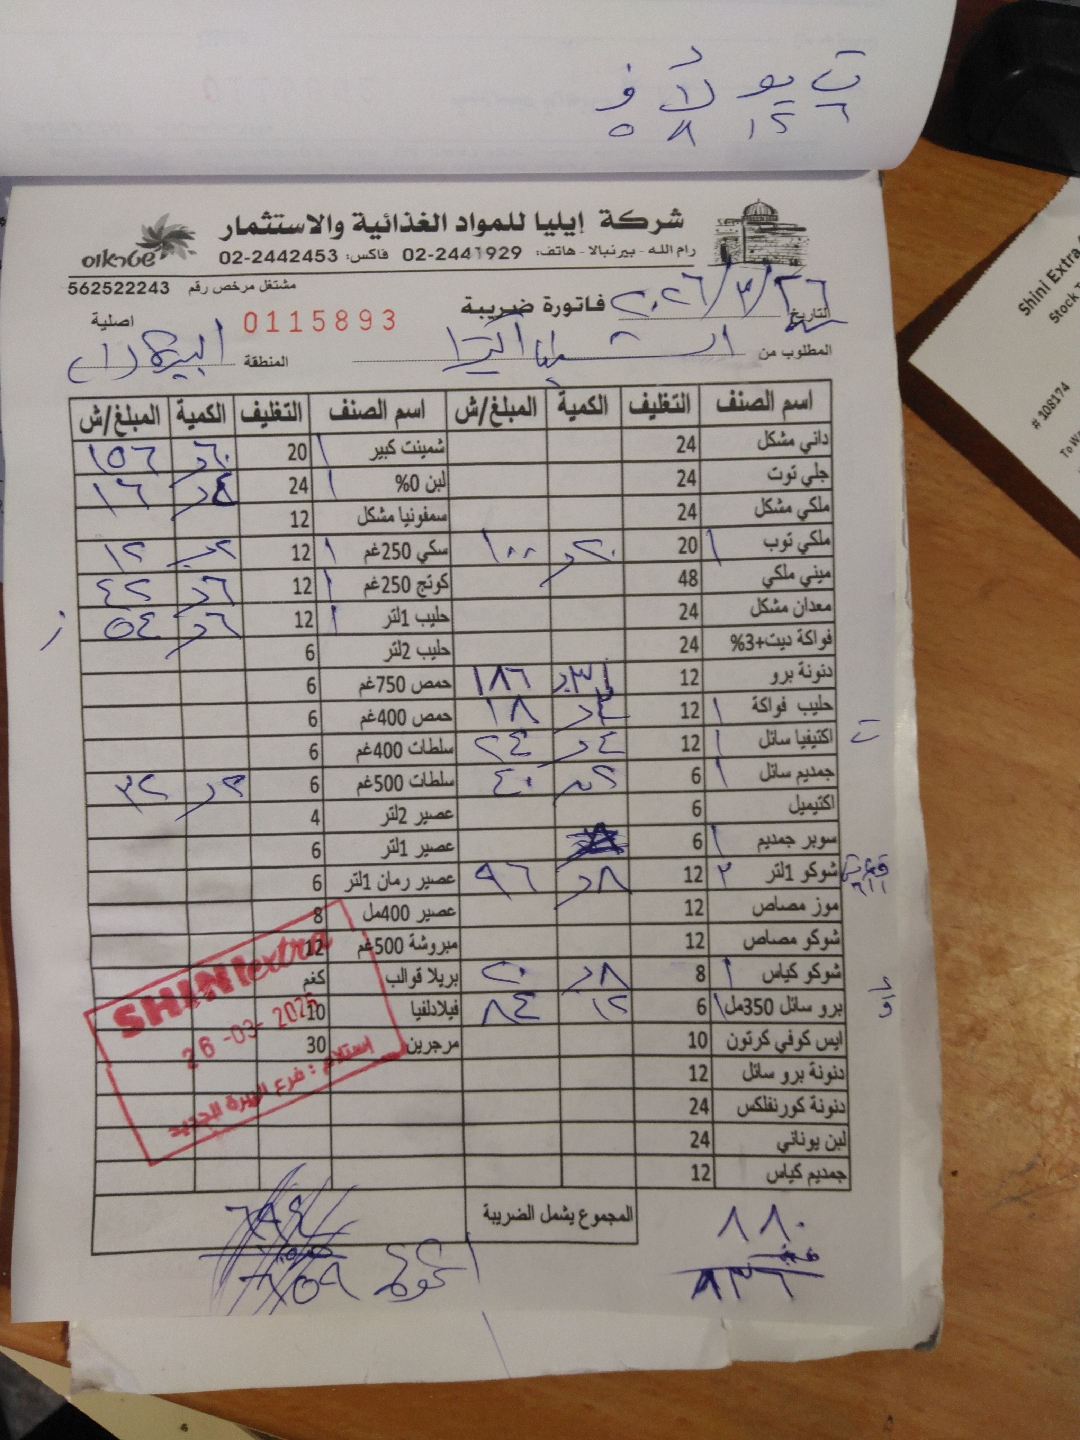 ت يو لأ ف
٦ ١٢ ٨ ٥
شركة إيليا للمواد الغذائية والاستثمار
رام الله - بيرنبالا - هاتف: 02-2441929 فاكس: 02-2442453
شتراوس
مشتغل مرخص رقم 562522243
التاريخ ٢٠٢٦/٣/٢٦ فاتورة ضريبة 0115893 اصلية
المطلوب من المنطقة البيرة
اسم الصنف التغليف الكمية المبلغ/ش اسم الصنف التغليف الكمية المبلغ/ش
داني مشكل 24 شمينت كبير ١ 20 ١٥٦
جلي توت 24 لبن 0% ١ 24 ١٦
ملكي مشكل 24 سمفونيا مشكل 12
ملكي توب ١ 20 ٢٠ ١٠٠ سكي 250غم ١ 12 ٢ ١٢
ميني ملكي 48 كوتج 250غم ١ 12 ٦ ٤٢
معدان مشكل 24 حليب 1لتر ١ 12 ٦ ٥٤
فواكة ديت+3% 24 حليب 2لتر 6
دنونة برو 12 ٣١ ١٨٦ حمص 750غم 6
حليب فواكة ١ 12 ١٨ حمص 400غم 6
اكتيفيا سائل ١ 12 ٤ ٢٤ سلطات 400غم 6
ت
جمديم سائل ١ 6 ٢ ٤٠ سلطات 500غم 6 ٣٢
اكتيميل 6 عصير 2لتر 4
سوبر جمديم ١ 6 عصير 1لتر 6
شوكو 1لتر ٢ 12 ٨ ٩٦ عصير رمان 1لتر 6
موز مصاص 12 عصير 400مل 8
شوكو مصاص 12 مبروشة 500غم 12
شوكو كياس ١ 8 ٨ ٢٠ بريلا قوالب كغم
برو سائل 350مل ١ 6 ١٢ ٨٤ فيلادلفيا 10
ايس كوفي كرتون 10 مرجرين 30
دنونة برو سائل 12
دنونة كورنفلكس 24
لبن يوناني 24
جمديم كياس 12
SHINI extra
26-03-2026
إستلام : فرع البيرة الجديد
المجموع يشمل الضريبة
٨٨٠
٨٣٦
Shini Extra
Stock T
# 108174